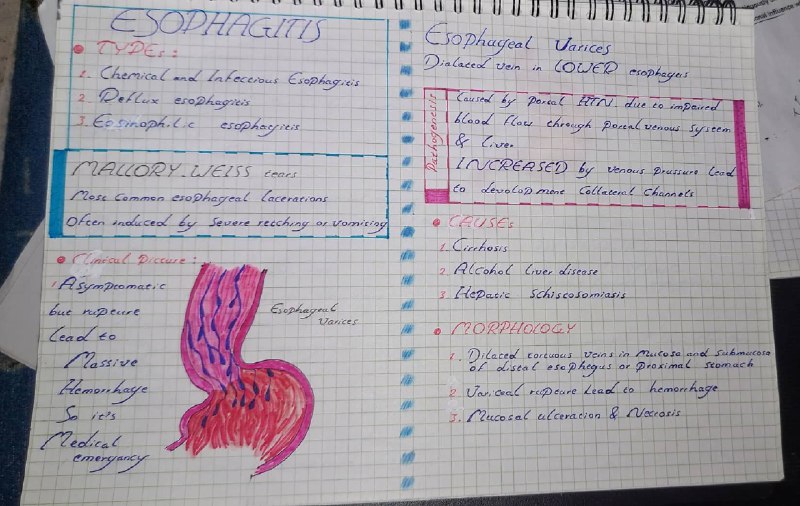 ESOPHAGITIS
TYPEs :
1. Chemical and Infectious Esophagitis
2. Reflux esophagitis
3. Eosinophilic esophagitis
MALLORY-WEISS tears
Most common esophageal lacerations
Often induced by severe retching or vomiting
Clinical Picture :
1 Asymptomatic
but rupture
Lead to
Massive
Hemorrhage
So it's
Medical
emergancy
Esophageal
Varices
Esophageal Varices
Dialaced vein in LOWER esophageus
Pathogenesis
Caused by portal HTN. due to impaired
blood flow through portal venous system
& liver.
INCREASED by venous pressure lead
to devolopment Collateral Channels
CAUSEs
1. Cirrhosis
2. Alcohol Liver disease
3. Hepatic Schistosomiasis
MORPHOLOGY
1. Dilated tortuous veins in Mucosa and submucosa
of distal esophegus or proximal stomach
2. Variceal rupture lead to hemorrhage
3. Mucosal ulceration & Necrosis